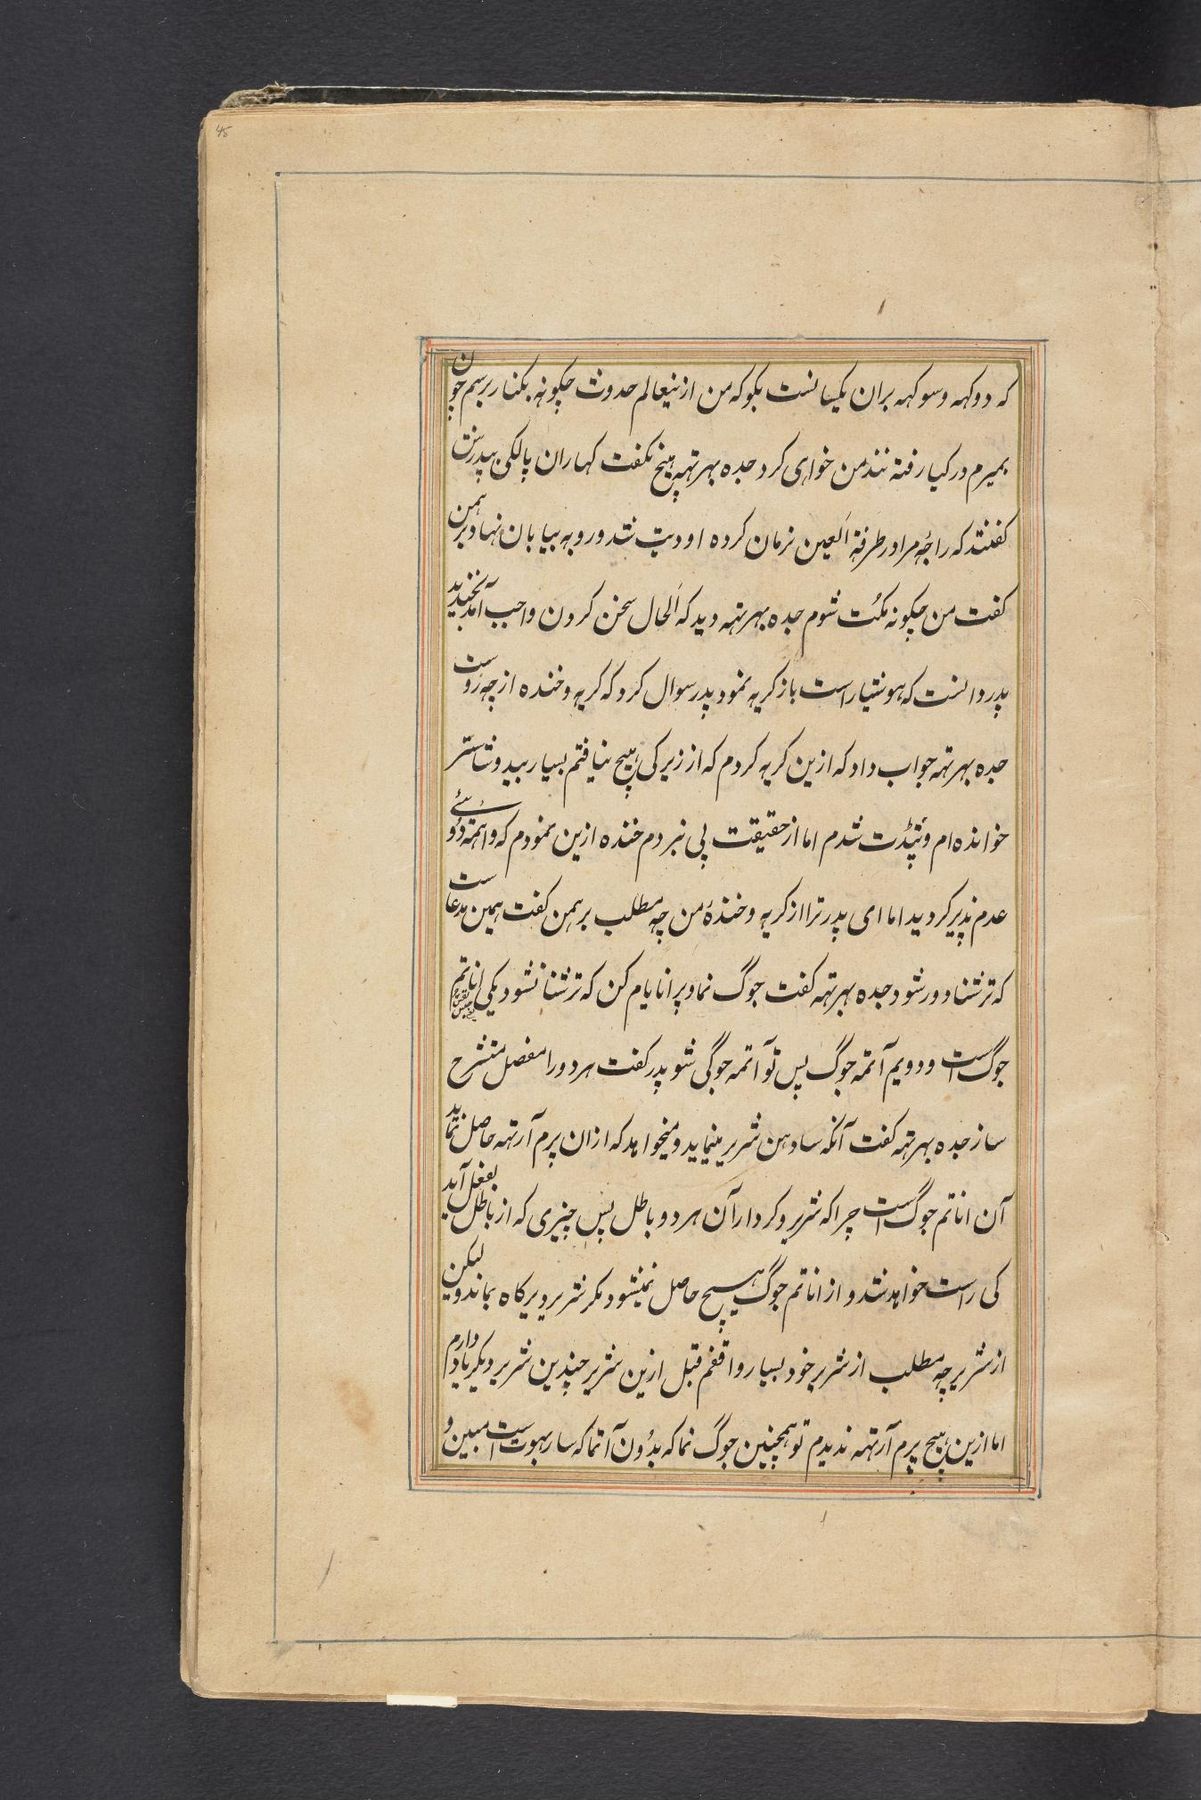 45
که دوکهه و سوکهه بران یکیانست بکو که من ازینعالم حدوث چکونه بکنار برسم چون
بمیرم در کیا رفته نندمن خواهی کرد جده بهرتهه هیچ نکفت کهاران پالکی بپدرش
کفتند که راجُه مرا در طرفة اَلعین نزمان کرده اودیت شد و رو به بیابان نهاد برهمن
کفت من چکونه مکُت شوم جده بهرتهه دید که اَلحال سخن کردن واجب آمد بخندید
پدر دانست که هوشیار است باز کریه نمود پدر سوال کرد که کریه و خنده از چه روست
جده بهرتهه جواب داد که ازین کریه کردم که از زیرکی هیچ نیافتم بسیار بید و شاستر
خوانده‌ام و پنڈت شدم اما از حقیقت پی نبردم خنده ازین نمودم که واهمٔه دُوئے
عدم پذیر کردید اما ای پدر ترا از کریه و خندهٔ من چه مطلب برهمن کفت همین مدعاست
که ترشنا دور شود جده بهرتهه کفت جوگ نما و پرانایام کن که ترشنا نشود یکی اناتم
جوگ است و دویم آتمه جوگ پس تو آتمه جوگی شو پدر کفت هر دو را مفصل منشرح
ساز جده بهرتهه کفت آنکه سادهن شریر مینماید و میخواهد که ازان پرم آرتهه حاصل نماید
آن اناتم جوگ است چرا که شریر و کردار آن هر دو باطل پس چیزی که از باطل بفعل آید
کی راست خواهد شد و از اناتم جوگ هیچ حاصل نمیشود مکر شریر دیرکاه بماند و لیکن
از شریر چه مطلب از شریر خود بسیار واقفم قبل ازین شریر چندین شریر دیکر یاد دارم
اما ازین هیچ پرم آرتهه ندیدم تو همچنین جوگ نما که بدُون آتما که سار بهوت است مبین و